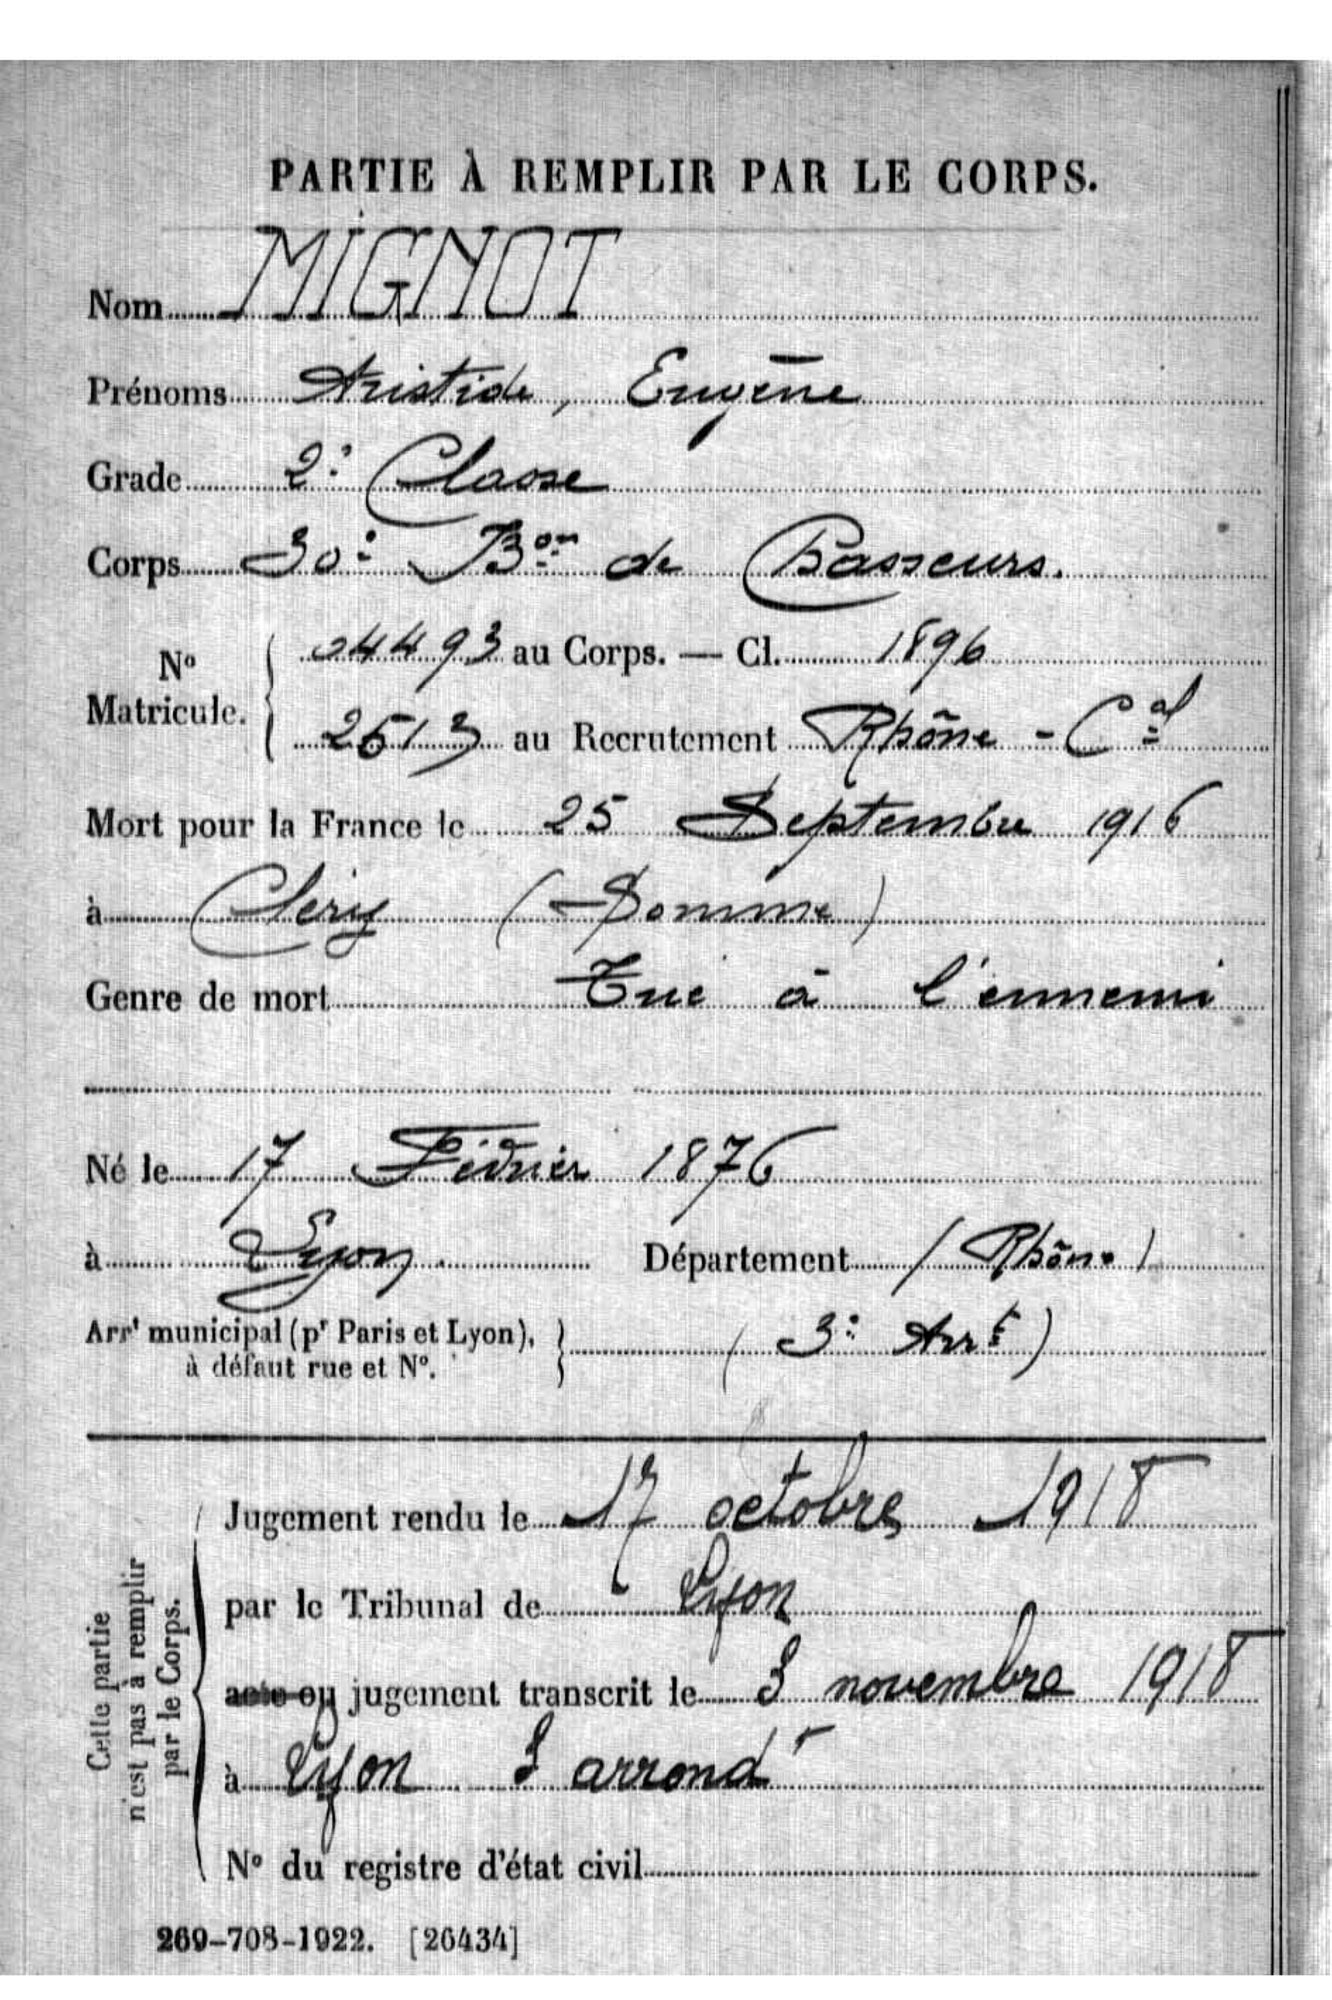 PARTIE À REMPLIR PAR LE CORPS.
Nom MIGNOT
Prénoms Aristide, Eugène
Grade 2e Classe
Corps 30e Bon de Chasseurs.
No Matricule. { 04493 au Corps. — Cl. 1896
2513 au Recrutement Rhône - Cal
Mort pour la France le 25 Septembre 1916
à Cléry (Somme)
Genre de mort Tué à l'ennemi
Né le 17 Février 1876
à Lyon Département (Rhône)
Arrt municipal (pr Paris et Lyon), } (3e Arrt)
à défaut rue et No.
Cette partie n'est pas à remplir par le Corps.
Jugement rendu le 17 octobre 1918
par le Tribunal de Lyon
acte ou jugement transcrit le 3 novembre 1918
à Lyon 3 arrondt
No du registre d'état civil
269-708-1922. [26434]